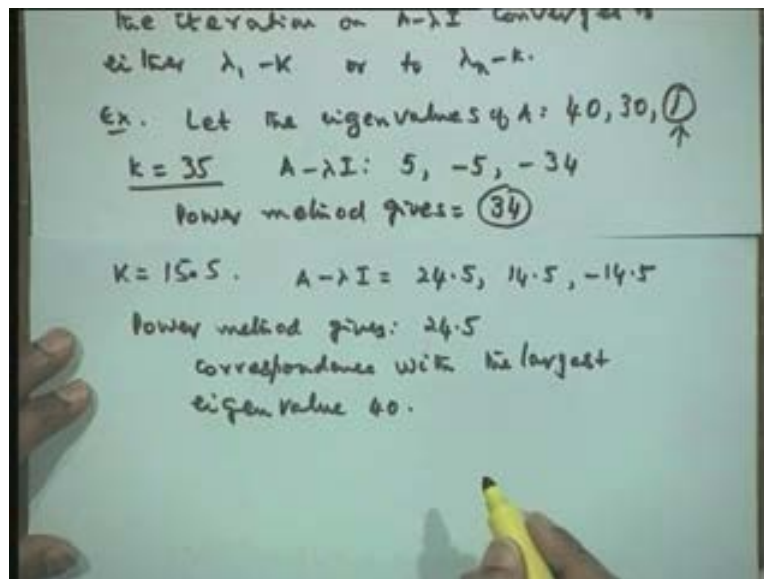 the iteration on A-λI converges to
either λ₁-K or to λₙ-k.
Ex. Let the eigenvalues of A: 40, 30, 1
k = 35 A-λI: 5, -5, -34
Power method gives = 34
K = 15.5. A-λI = 24.5, 14.5, -14.5
Power method gives: 24.5
correspondence with the largest
eigen value 40.